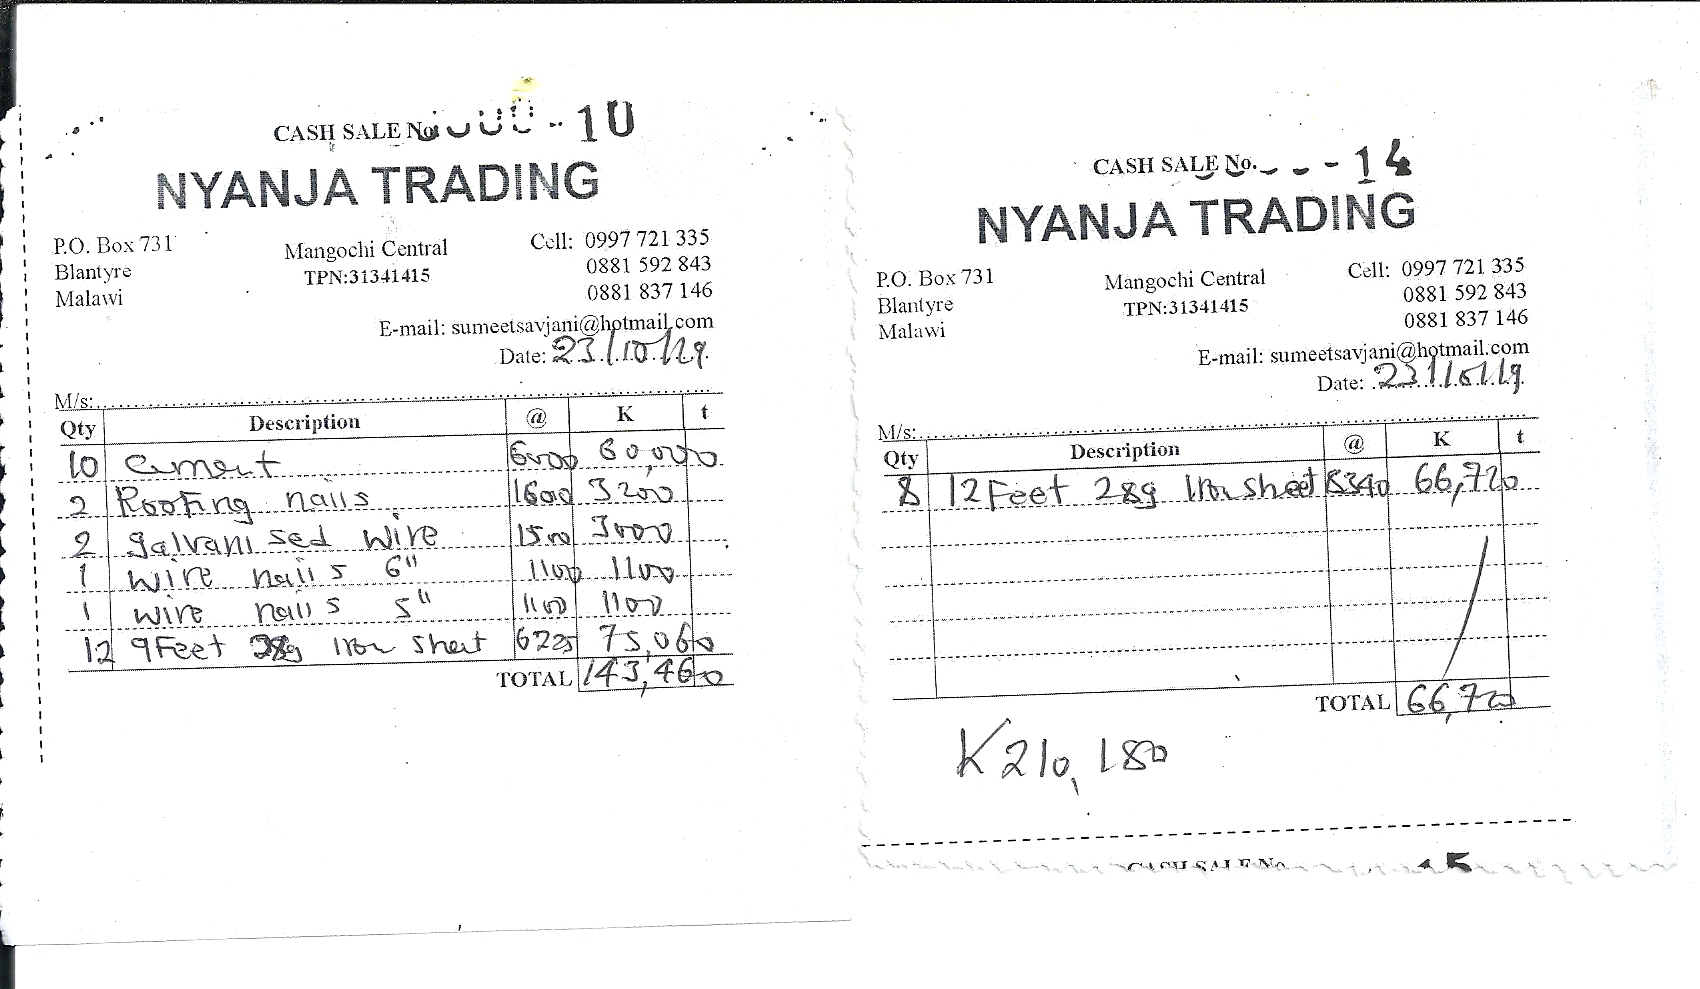 CASH SALE No. -10
NYANJA TRADING
P.O. Box 731
Blantyre
Malawi
Mangochi Central
TPN:31341415
Cell: 0997 721 335
0881 592 843
0881 837 146
E-mail: sumeetsavjani@hotmail.com
Date: 23/10/19
M/s:
Qty Description @ K t
10 Cement 6000 60,000
2 Roofing nails 1600 3200
2 galvanised wire 1500 3000
1 wire nails 6" 1100 1100
1 wire nails 5" 1100 1100
12 9Feet 28g Iron Sheet 75,060
TOTAL 143,460
CASH SALE No. -14
NYANJA TRADING
P.O. Box 731
Blantyre
Malawi
Mangochi Central
TPN:31341415
Cell: 0997 721 335
0881 592 843
0881 837 146
E-mail: sumeetsavjani@hotmail.com
Date: 23/10/19
M/s:
Qty Description @ K t
8 12Feet 28g Iron Sheet 8340 66,720
TOTAL 66,720
K210,180
CASH SALE No. 15